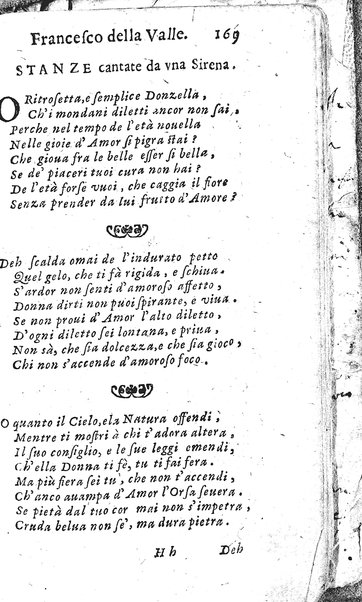 Francesco della Valle. 169
STANZE cantate da vna Sirena.
O Ritrosetta, e semplice Donzella,
Ch'i mondani diletti ancor non sai,
Perche nel tempo de l'età nouella
Nelle gioie d'Amor sì pigra stai?
Che gioua fra le belle esser sì bella,
Se de' piaceri tuoi cura non hai?
De l'età forse vuoi, che caggia il fiore
Senza prender da lui frutto d'Amore?
Deh scalda omai de l'indurato petto
Quel gelo, che ti fà rigida, e schiua.
S'ardor non senti d'amoroso affetto,
Donna dirti non puoi spirante, e viua.
Se non proui d'Amor l'alto diletto,
D'ogni diletto sei lontana, e priua,
Non sà, che sia dolcezza, e che sia gioco,
Chi non s'accende d'amoroso foco.
O quanto il Cielo, e la Natura offendi,
Mentre ti mostri à chi t'adora altera,
Il suo consiglio, e le sue leggi emendi,
Ch'ella Donna ti fè, tu ti fai fera.
Ma più fiera sei tu, che non t'accendi,
Ch'anco auampa d'Amor l'Orsa seuera.
Se pietà dal tuo cor mai non s'impetra,
Cruda belua non se', ma dura pietra.
H h Deh